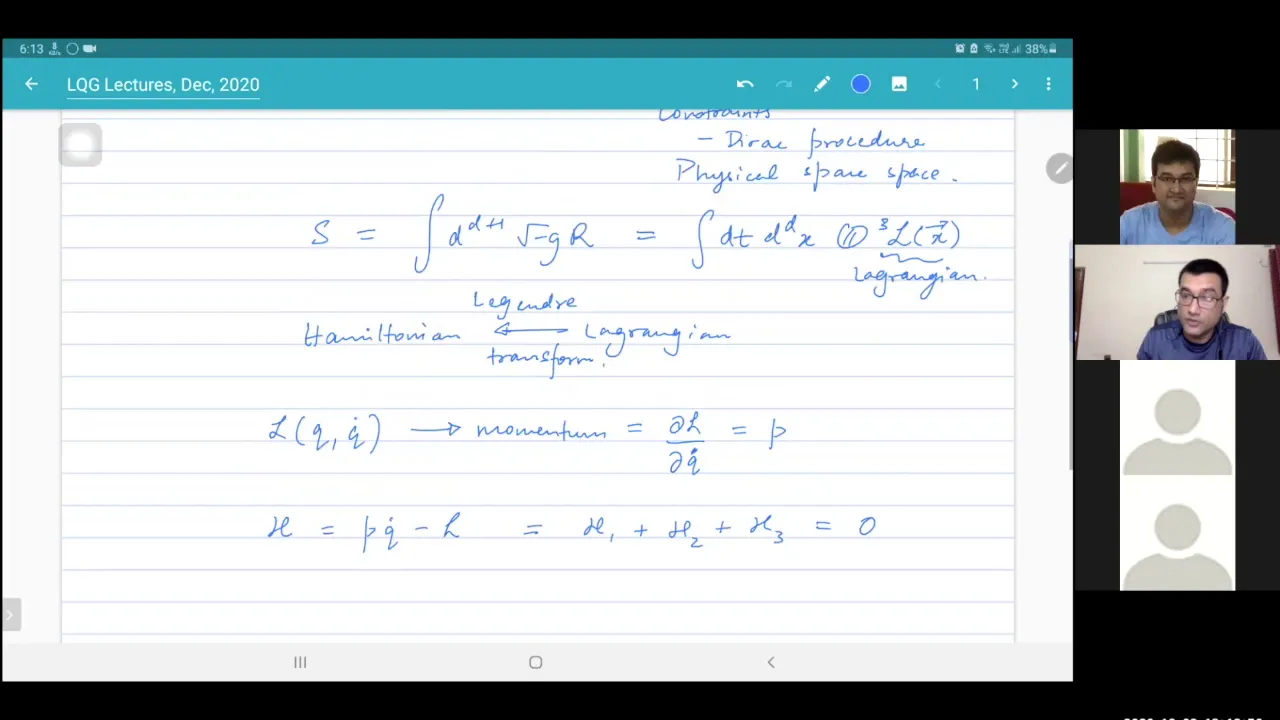 6:13 38%
LQG Lectures, Dec, 2020
1
Constraints
– Dirac procedure
Physical spare space.
S = ∫ d^{d+1} √-g R = ∫ dt d^d x ³L(x⃗)
Lagrangian.
Legendre
Hamiltonian ⟵ Lagrangian
transform.
L(q, q̇) ⟶ momentum = ∂L/∂q̇ = p
H = p q̇ – L = H₁ + H₂ + H₃ = 0